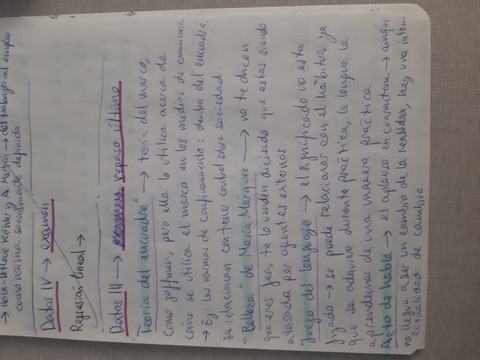 → Hola-Letour Könler y A. Martín → del trabajo al empleo
como norma socialmente definida.
Datos IV → examen
Regresión lineal →
Datos III → examen, repaso último
"Teoría del encuadre" → teoría del marco,
como goffman, pero ella lo utiliza acerca de
cómo se utiliza el marco en los medios de comunicaci
→ Ej: las normas de confinamiento: dentro del encuadre,
se relacionan con tener control sobre sociedad.
"Belleza" de María Márquez → no te dicen
que eres fea, te lo venden diciendo que estas siendo
atacada por agentes externos.
Juego del lenguaje → el significado no esta
fijado → se puede relacionar con el habitus, ya
que se adquiere durante práctica, la lengua la
aprendemos de una manera práctica.
Acto de habla → el aplauso en cuarentena → aunque
no llegue a ser un cambio de la realidad, hay una inten
cionalidad de cambio